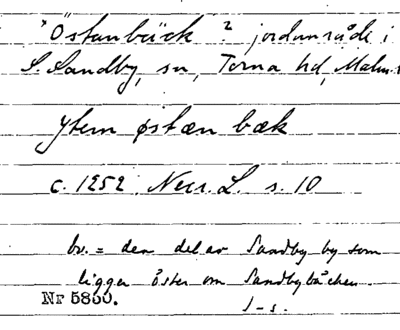 "Östanbäck"? jordområde i
S. Sandby, sn, Torna hd, Malm.
Ytem østæn bæk
c. 1252 Necr. L. s. 10
bv. = den del av Sandby by som
ligger öster om Sandbybäcken.
Nr 5800. J-s.